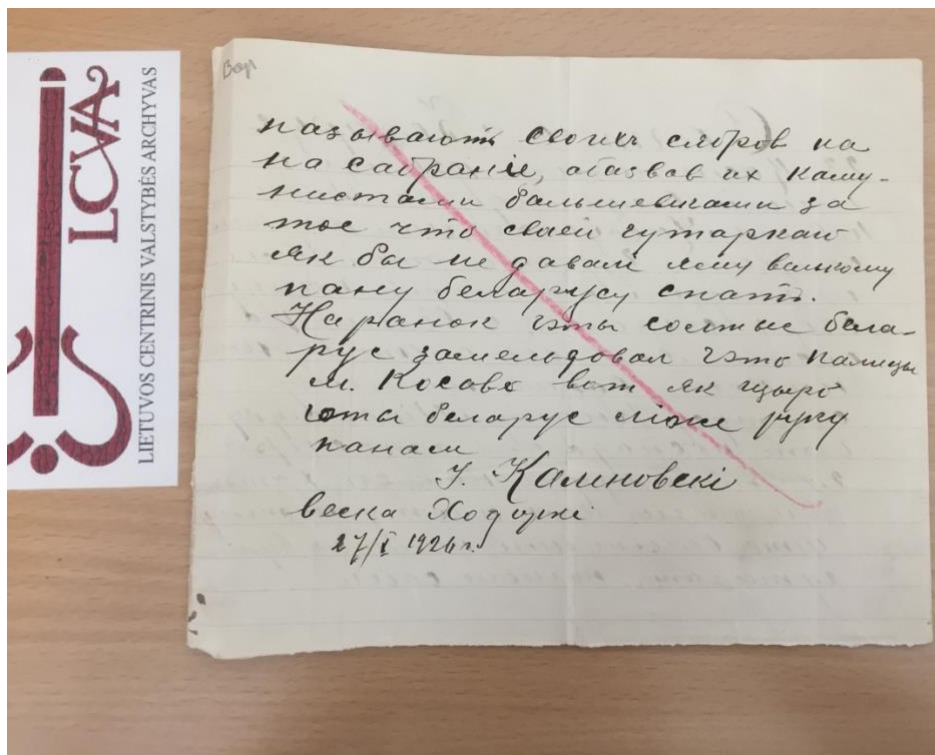 LCVA
LIETUVOS CENTRINIS VALSTYBĖS ARCHYVAS
называють своих сябров на
на сабраніе, абазвав их каму-
нистами бальшевиками за
тое что своей гутаркаю
як бы не давалі яму вялікому
пану беларусу спать.
На ранок гэты солтыс бела-
рус замельдовал гэто паліцы
м. Косово вот як щыро
гэты беларус ліже руку
панам
Каліновскі
веска Ходоркі
27/I 1926 г.